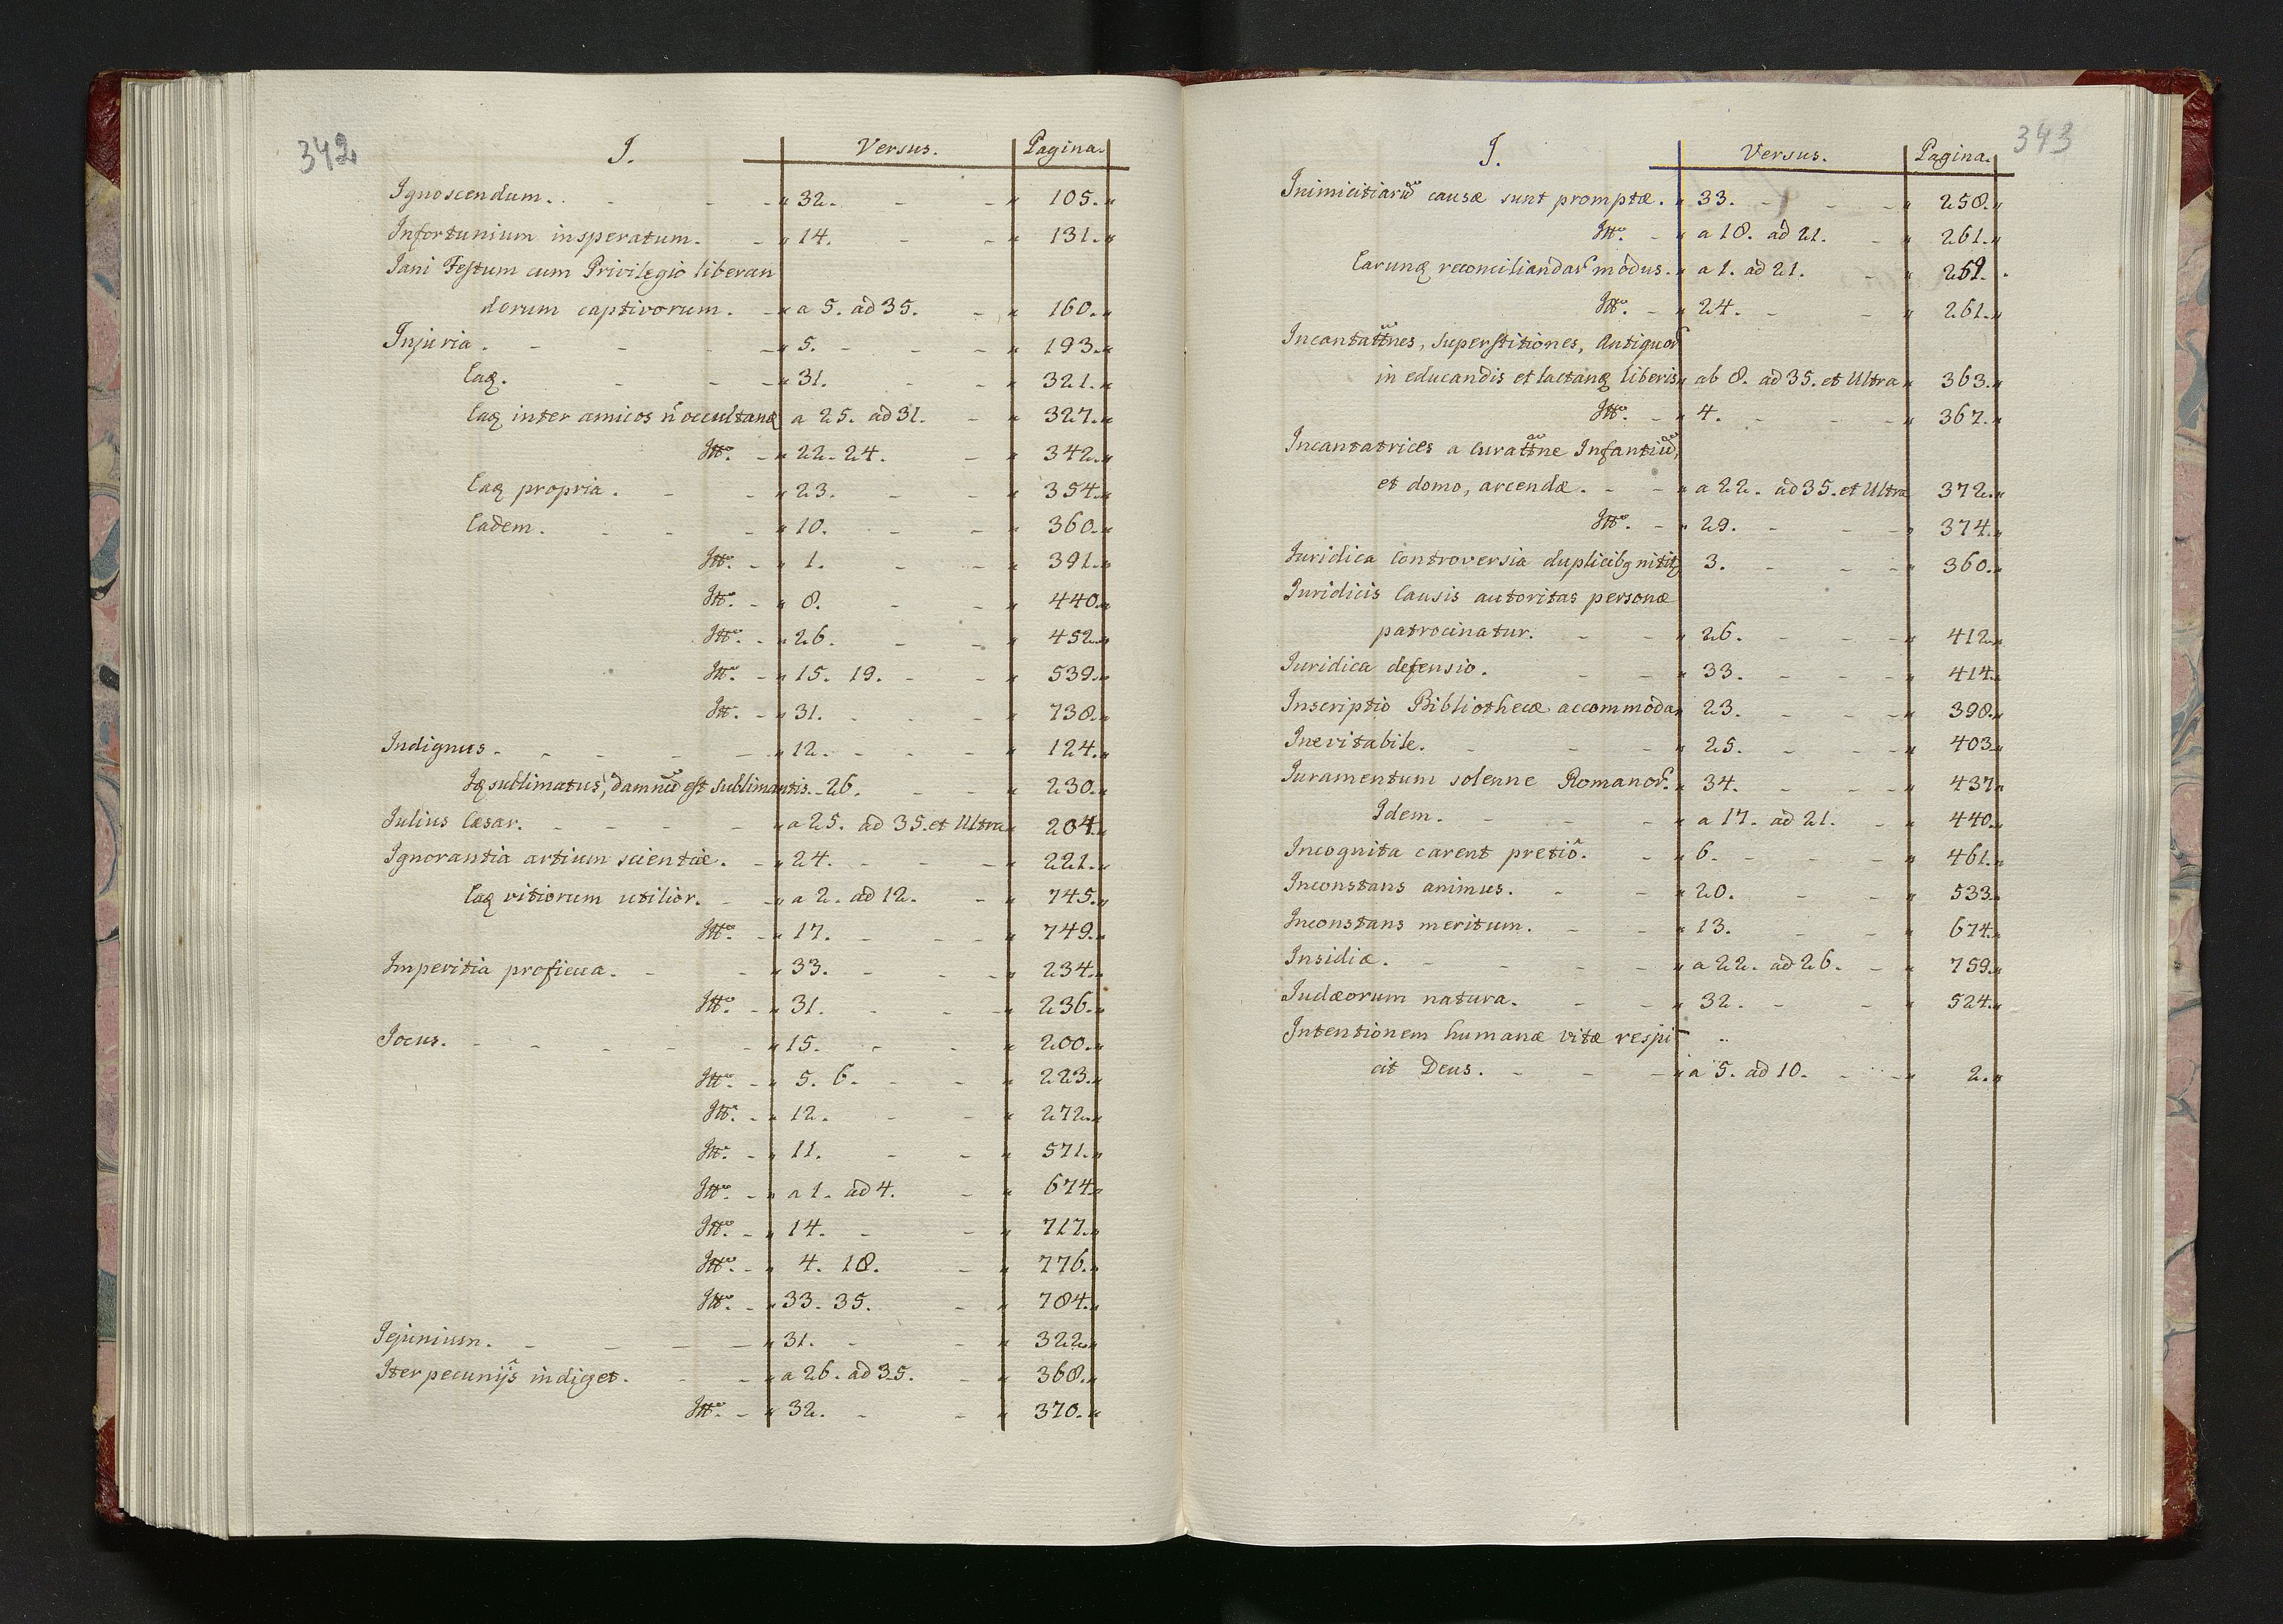 342
I. Versus. Pagina.
Ignoscendum. 32. 105.
Infortunium insperatum. 14. 131.
Jani Festum cum Privilegio liberan
dorum captivorum. a 5. ad 35. 160.
Injuria. 5. 193.
Eaq. 31. 321.
Eaq inter amicos ñ occultanq a 25. ad 31. 327.
Itt. 22. 24. 342.
Eaq propria. 23. 354.
Eadem. 10. 360.
Itt. 1. 391.
Itt. 8. 440.
Itt. 26. 452.
Itt. 15. 19. 539.
Itt. 31. 738.
Indignus. 12. 124.
Iq sublimatus, damnũ est sublimantis. 26. 230.
Julius Cæsar. a 25. ad 35. et Ultra 204.
Ignorantia artium scientiæ. 24. 221.
Eaq vitiorum utilior. a 2. ad 12. 745.
Itt. 17. 749.
Imperitia proficua. 33. 234.
Itt. 31. 236.
Jocus. 15. 200.
Itt. 5. 6. 223.
Itt. 12. 272.
Itt. 11. 571.
Itt. a 1. ad 4. 674.
Itt. 14. 717.
Itt. 4. 18. 776.
Itt. 33. 35. 784.
Jejunium. 31. 322.
Iter pecunijs indiget. a 26. ad 35. 368.
Itt. 32. 370.
343
I. Versus. Pagina.
Inimicitiarũ causæ sunt promptæ. 33. 258.
Itt. a 18. ad 21. 261.
Earunq reconciliandar modus. a 1. ad 21.
Itt. 24. 261.
Incantattnes, Superstitiones, Antiquor
in educandis et lactanq liberis ab 8. ad 35. et Ultra 363.
Itt. 4. 367.
Incantatrices a Curattne Infantiũ,
et domo, arcendæ. a 22. ad 35. et Ultra 372.
Itt. 29. 374.
Juridica Controversia duplicibq nititq 3. 360.
Juridicis Causis autoritas personæ
patrocinatur. 26. 412.
Juridica defensio. 33. 414.
Inscriptio Bibliothecæ accommoda 23. 398.
Inevitabile. 25. 403
Juramentum solenne Romanor. 34. 437
Idem. a 17. ad 21. 440.
Incognita carent pretiô. 6. 461.
Inconstans animus. 20. 533.
Inconstans meritum. 13. 674.
Insidiæ. a 22. ad 26. 759.
Judæorum natura. 32. 524.
Intentionem humanæ vitæ respi
cit Deus. a 5. ad 10. 2.